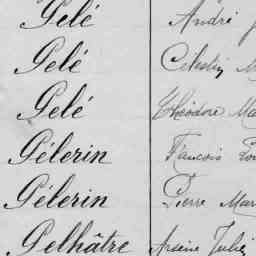 Gelé André
Gelé Célestin
Gelé Théodore Ma
Gélerin François
Gélerin Pierre Mar
Gelhâtre Arsène Jules